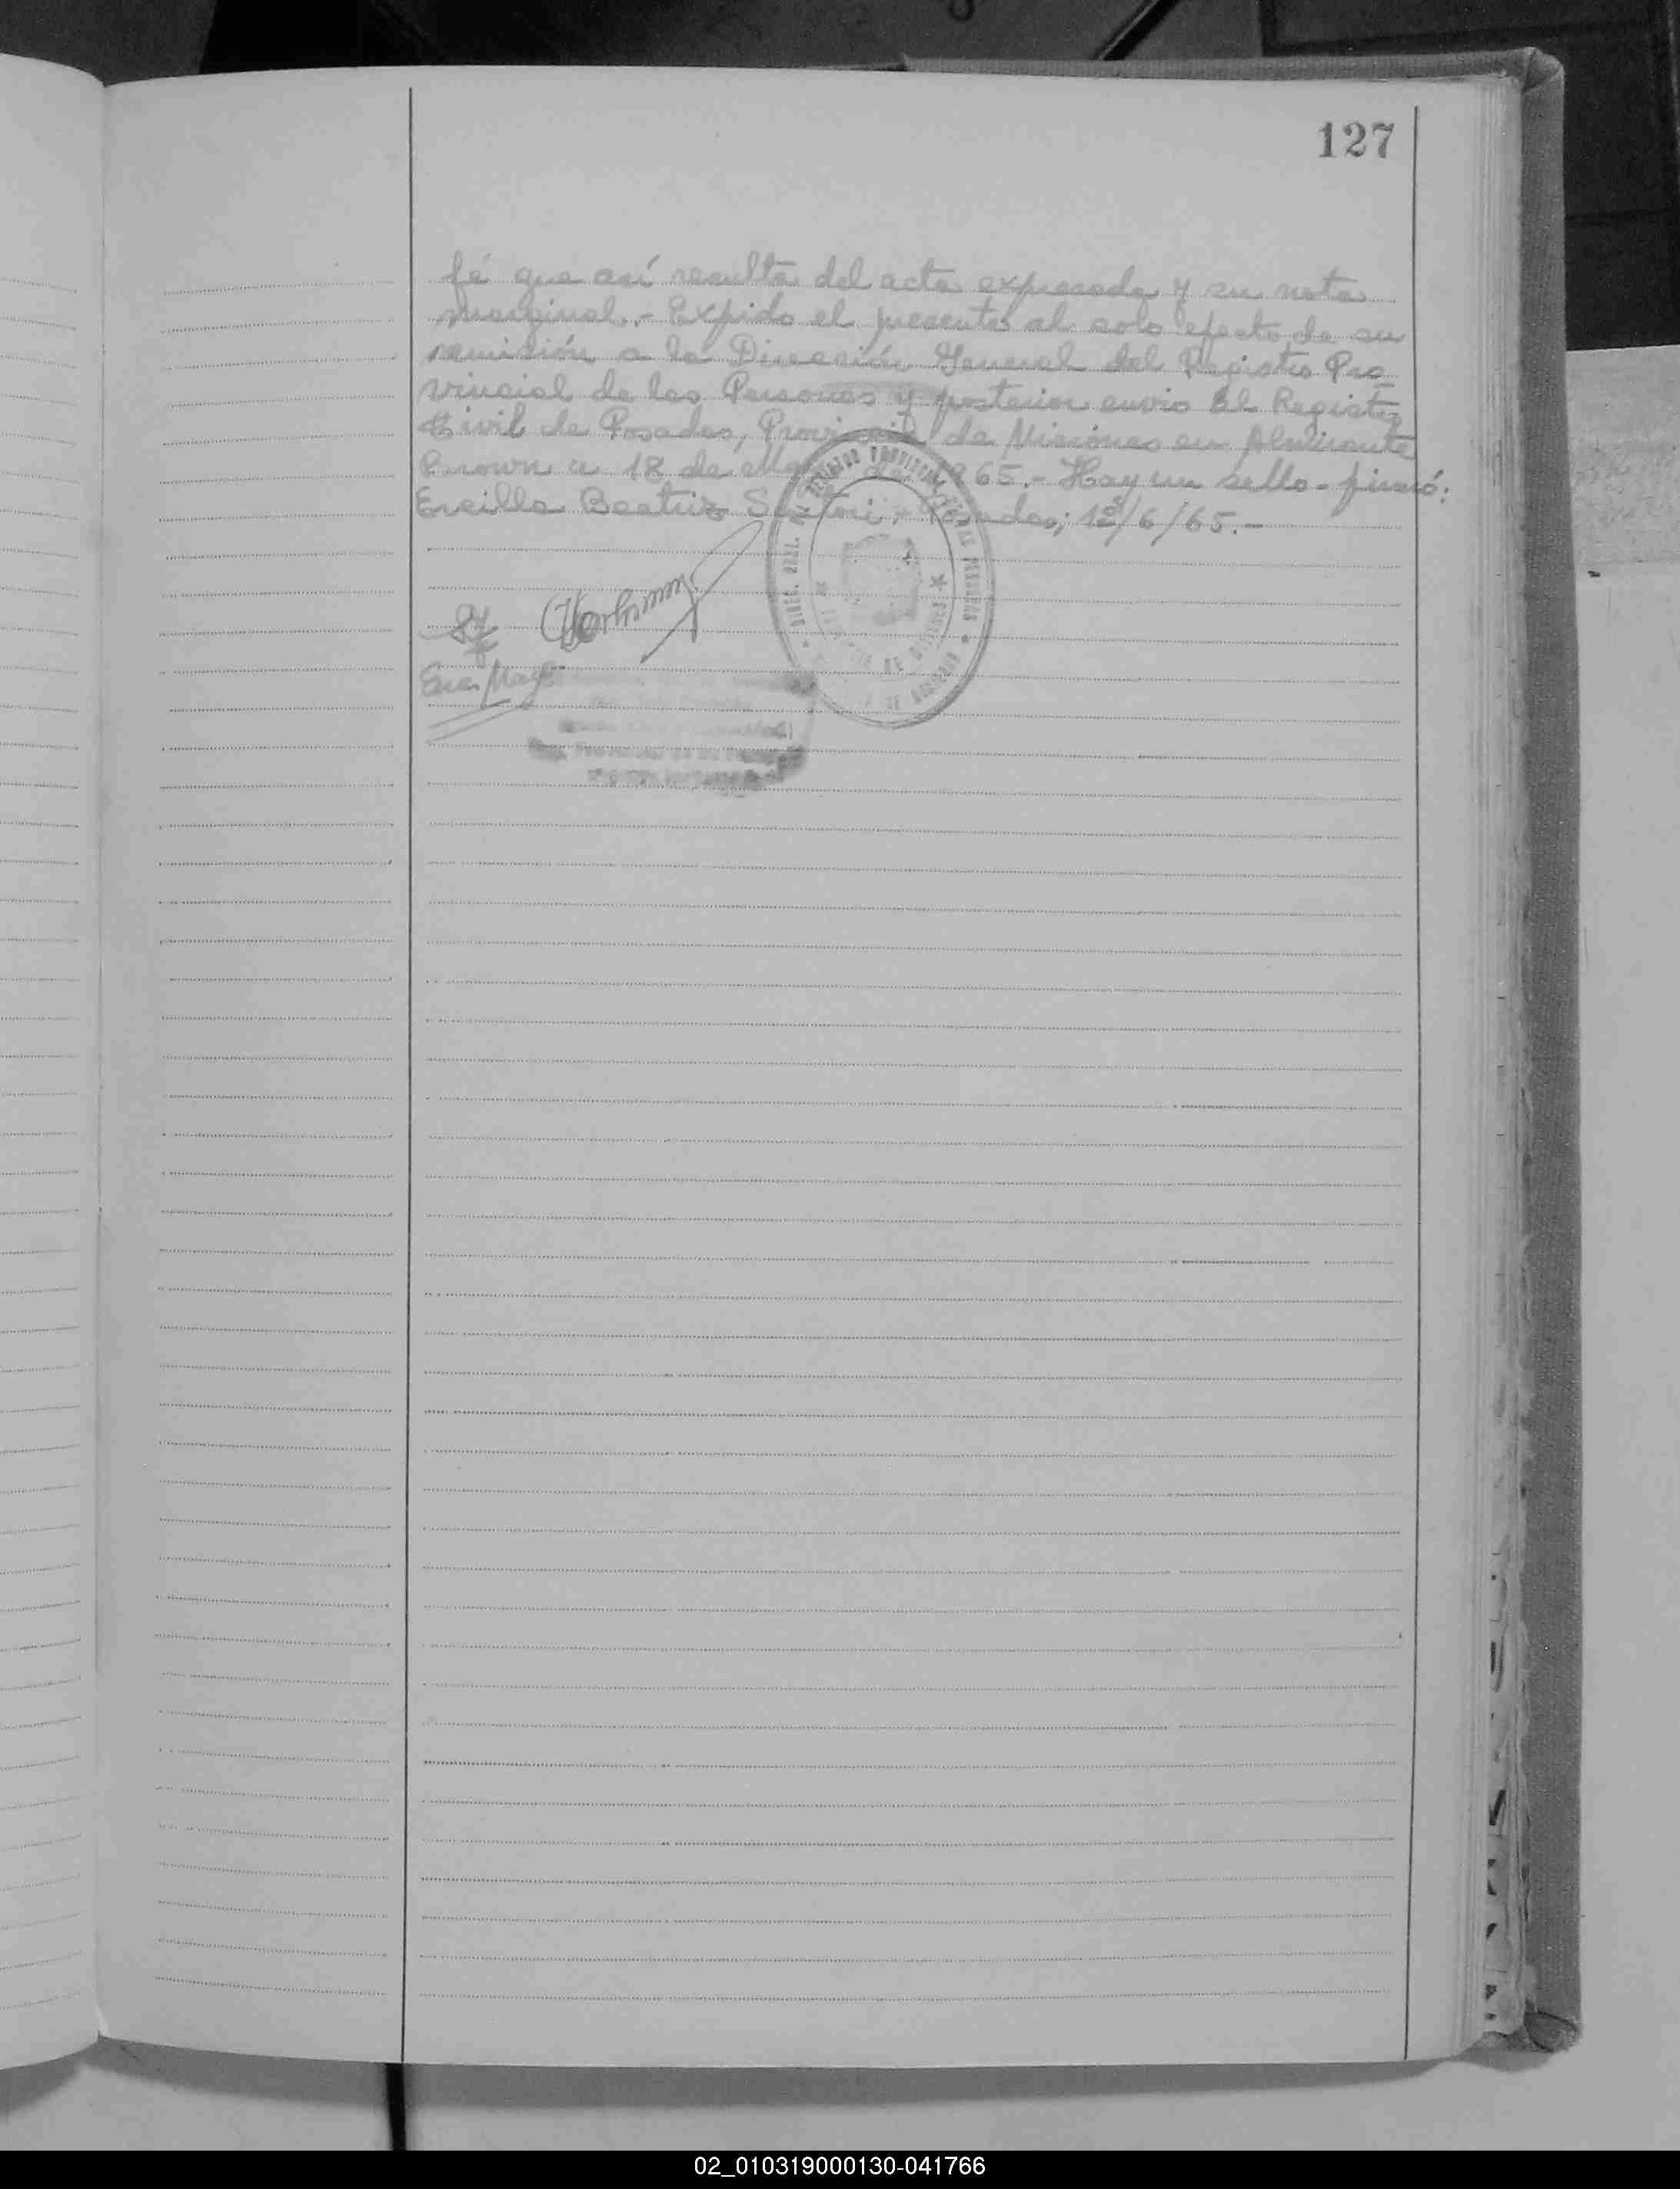 127
fé que así resulta del acta expresada y su nota
marginal.- Expido el presente al solo efecto de su
remisión a la Dirección General del Registro Pro
vincial de las Personas y posterior envio al Registro
Civil de Posadas, Provincia de Misiones en Almirante
Brown a 18 de Mayo de 1965.- Hay un sello - firmó:
Ercilla Beatriz Santori.- Posadas; 18/6/65.-
DIREC. GRAL. DEL REGISTRO PROVINCIAL DE LAS PERSONAS
02_010319000130-041766